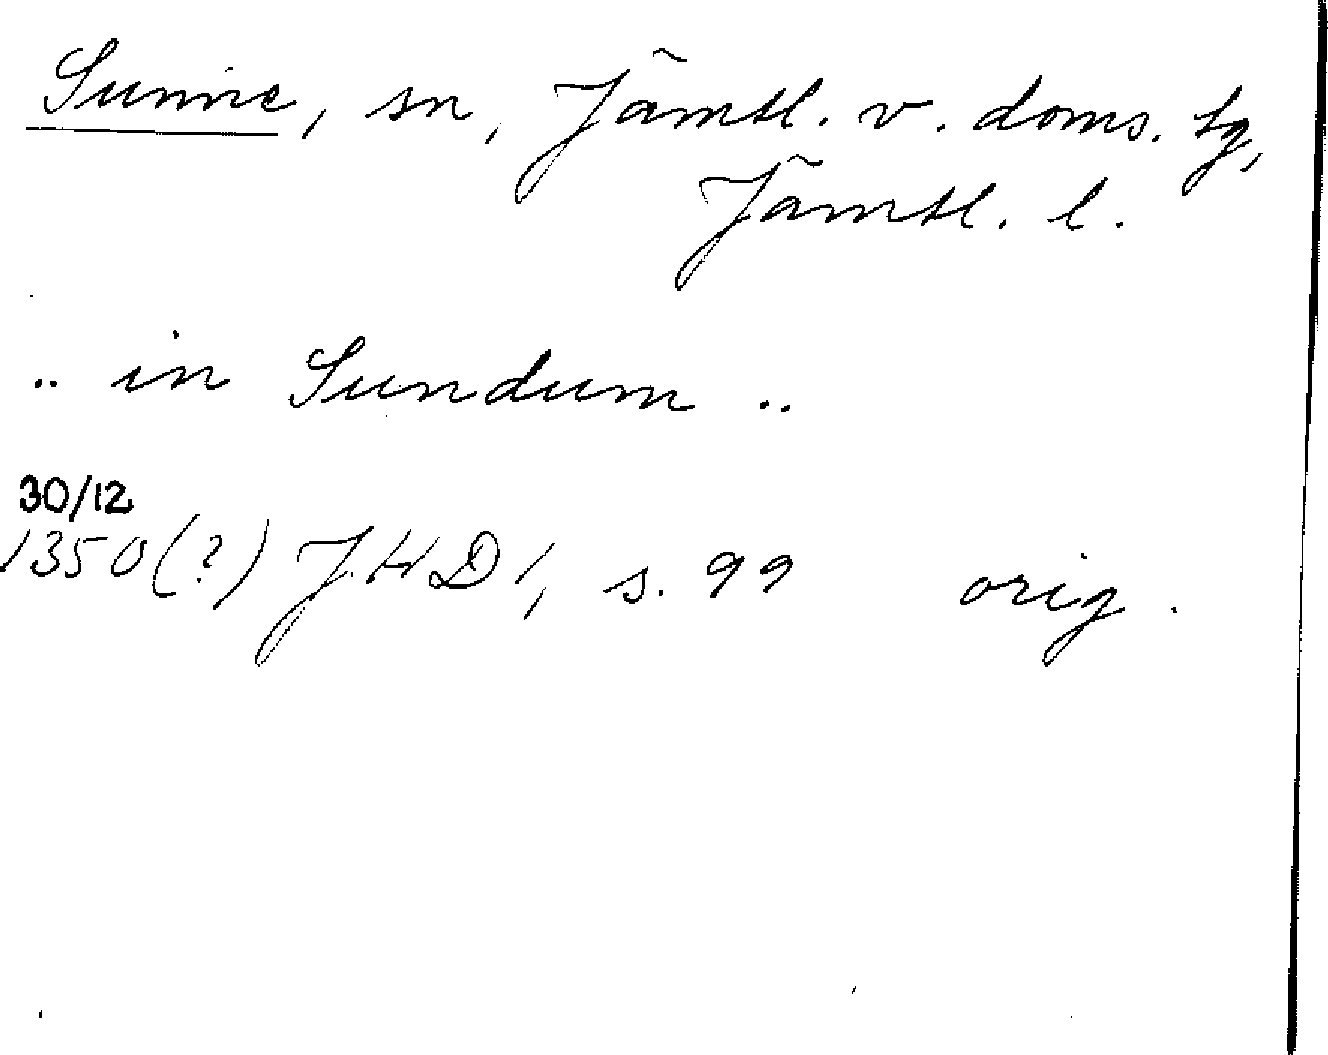 Sunne, sn, Jämtl. v. doms. tg,
Jämtl. l.
.. in Sundum ..
30/12
1350(?) JHD 1, s. 99 orig.